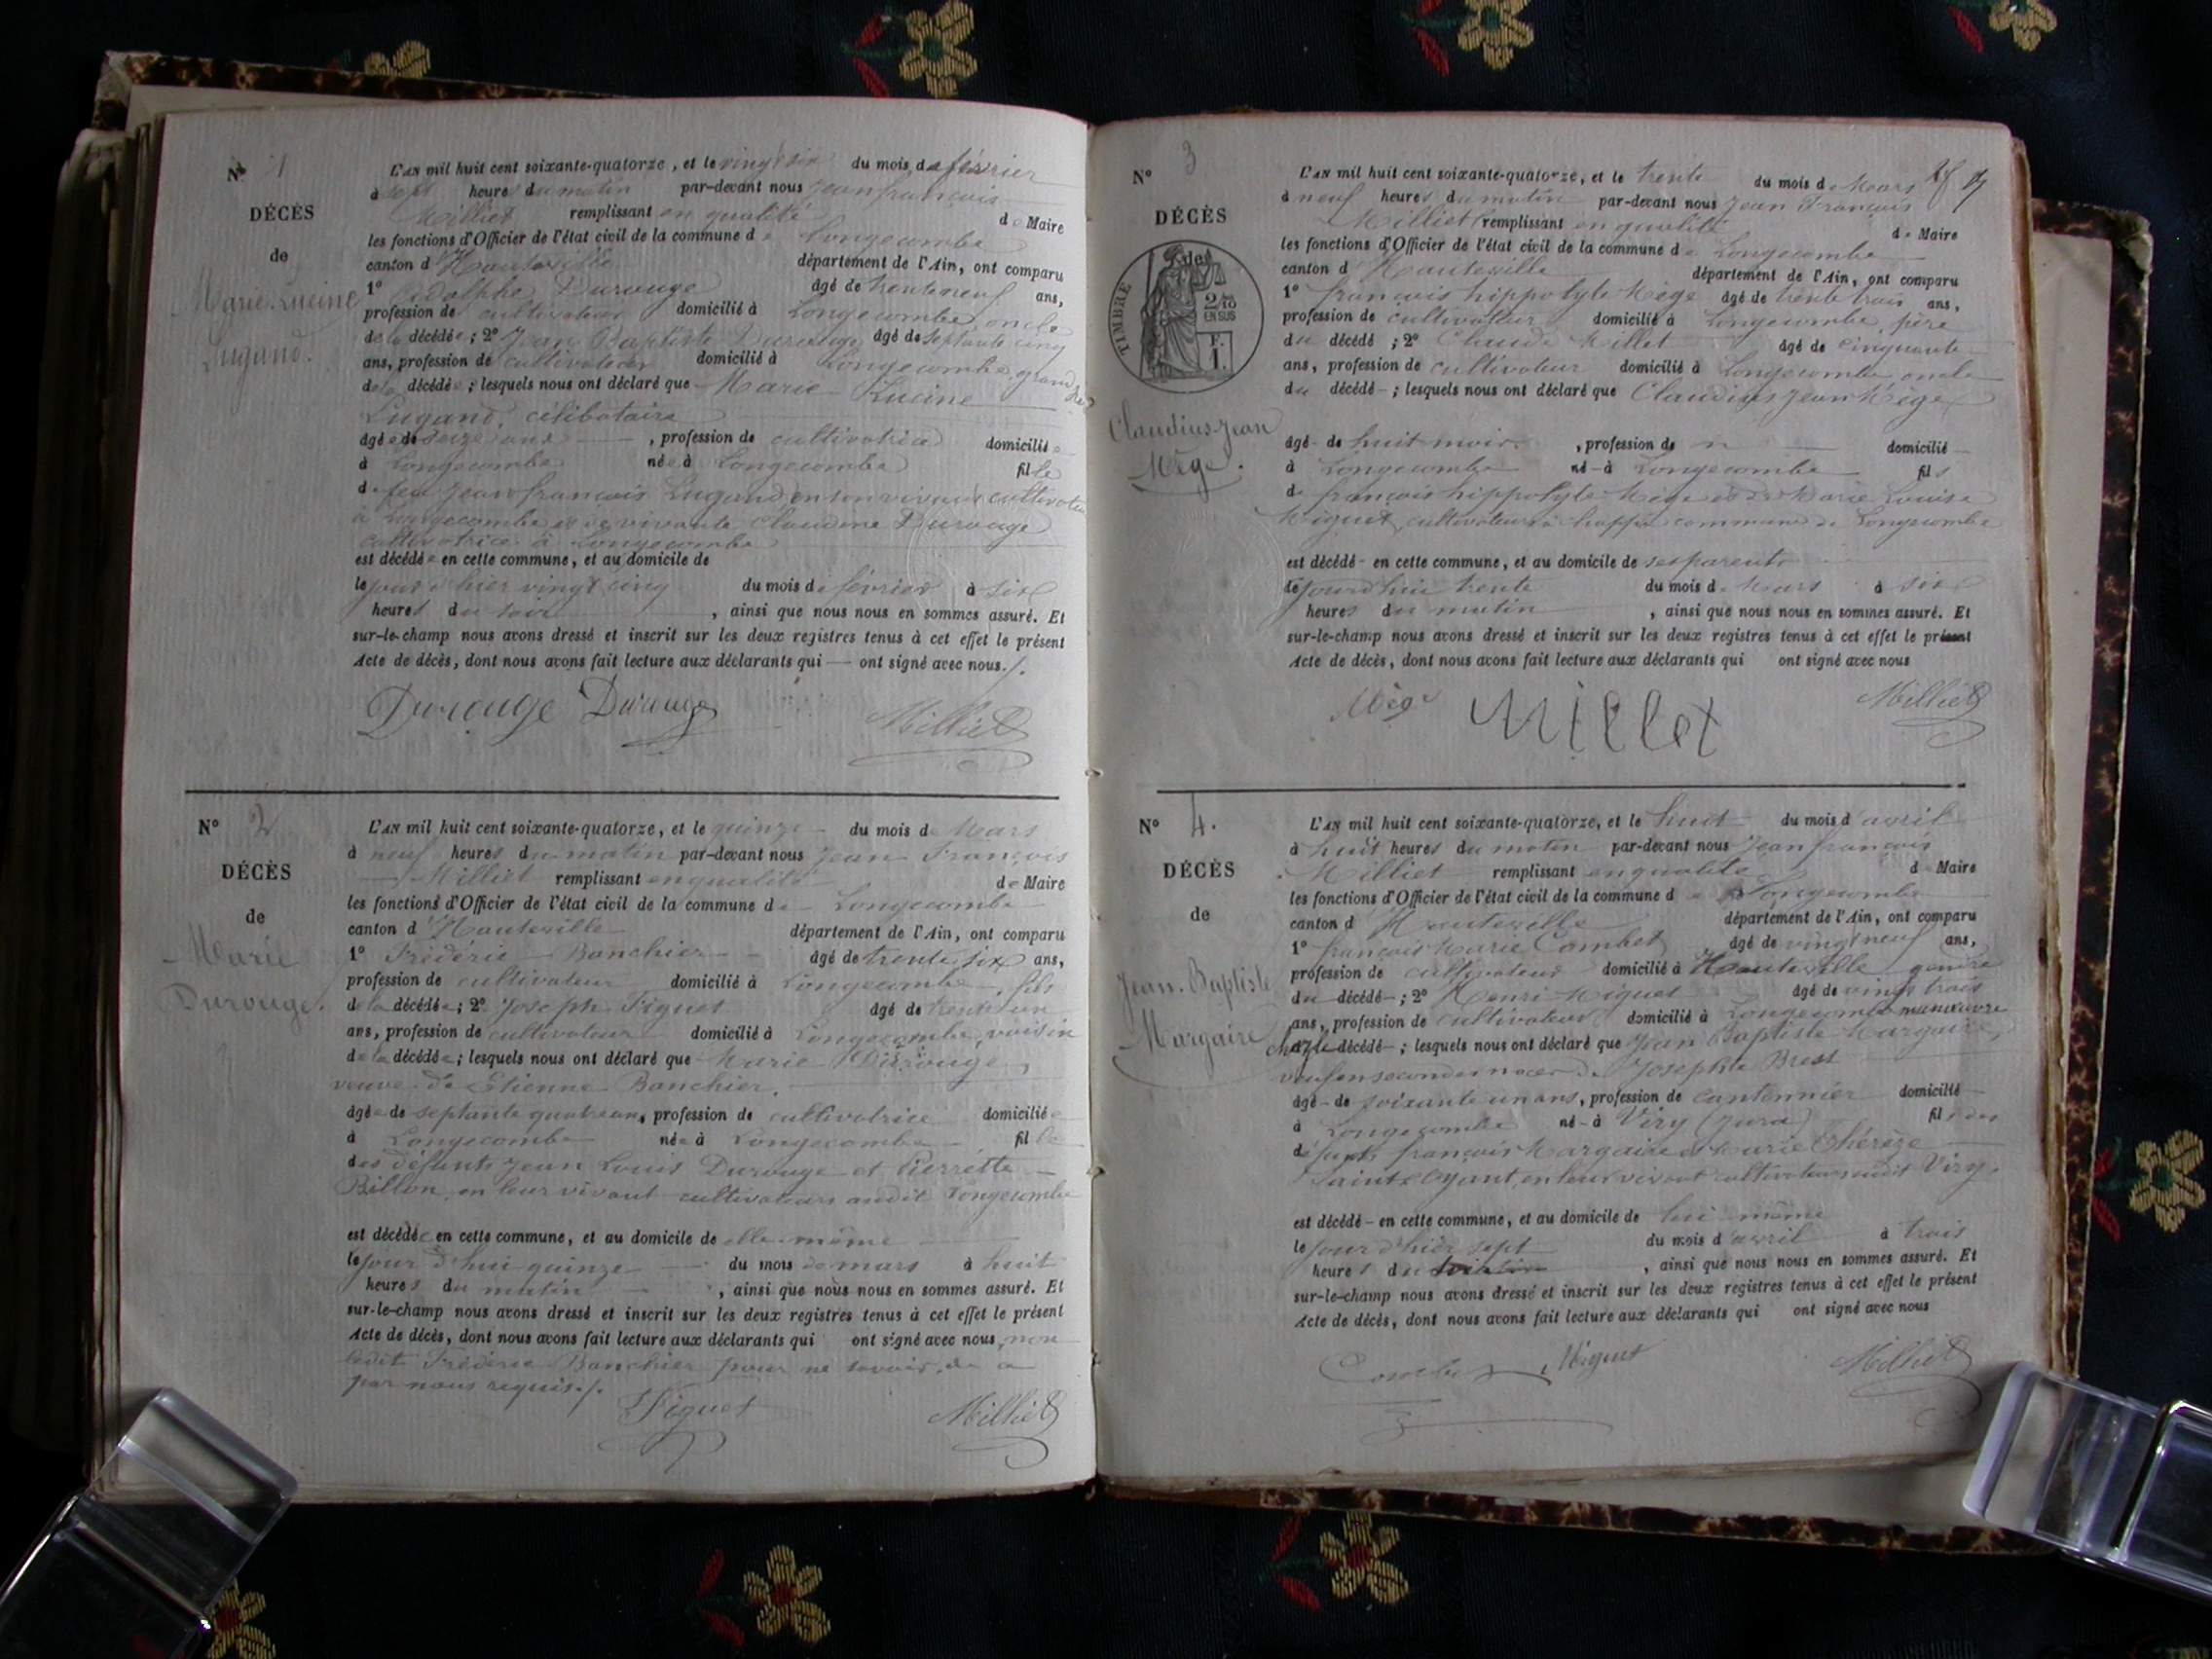 N° 1
DÉCÈS
de
Marie Lucine
Lugand.
L'AN mil huit cent soixante-quatorze, et le vingt six du mois de février
à sept heures du matin par-devant nous Jean françois
Milliet remplissant en qualité de Maire
les fonctions d'Officier de l'état civil de la commune de Longecombe
canton d'Hauteville département de l'Ain, ont comparu
1° Adolphe Durouge âgé de trente neuf ans,
profession de cultivateur domicilié à Longecombe, oncle
de la décédée; 2° Jean Baptiste Durouge âgé de septante cinq
ans, profession de cultivateur domicilié à Longecombe, grand
de la décédée; lesquels nous ont déclaré que Marie Lucine
Lugand, célibataire
âgée de seize ans, profession de cultivatrice domiciliée
à Longecombe née à Longecombe fille
de feu Jean françois Lugand, en son vivant cultivateur
à Longecombe et de vivante Claudine Durouge
cultivatrice à Longecombe
est décédée en cette commune, et au domicile de
le jour d'hier vingt cinq du mois de février à six
heures du soir, ainsi que nous nous en sommes assuré. Et
sur-le-champ nous avons dressé et inscrit sur les deux registres tenus à cet effet le présent
Acte de décès, dont nous avons fait lecture aux déclarants qui — ont signé avec nous./.
Durouge Durouge Milliet
N° 2
DÉCÈS
de
Marie
Durouge.
L'AN mil huit cent soixante-quatorze, et le quinze du mois de Mars
à neuf heures du matin par-devant nous Jean François
Milliet remplissant en qualité de Maire
les fonctions d'Officier de l'état civil de la commune de Longecombe
canton d'Hauteville département de l'Ain, ont comparu
1° Frédéric Banchier âgé de trente six ans,
profession de cultivateur domicilié à Longecombe, fils
de la décédée; 2° Joseph Figuet âgé de trente un
ans, profession de cultivateur domicilié à Longecombe, voisin
de la décédée; lesquels nous ont déclaré que Marie Durouge,
veuve de Etienne Banchier.
âgée de septante quatre ans, profession de cultivatrice domiciliée
à Longecombe née à Longecombe fille
des défunts Jean Louis Durouge et Pierrette
Billon, en leur vivant cultivateurs audit Longecombe
est décédée en cette commune, et au domicile de elle-même
le jour d'hui quinze du mois de mars à huit
heures du matin, ainsi que nous nous en sommes assuré. Et
sur-le-champ nous avons dressé et inscrit sur les deux registres tenus à cet effet le présent
Acte de décès, dont nous avons fait lecture aux déclarants qui ont signé avec nous, non
ledit Frédéric Banchier pour ne savoir, de ce
par nous requis./.
Figuet Milliet
N° 3
DÉCÈS
de
TIMBRE
2/10
EN SUS
F.
1.
Claudius Jean
Mége.
L'AN mil huit cent soixante-quatorze, et le trente du mois de Mars
à neuf heures du matin par-devant nous Jean François
Milliet remplissant en qualité de Maire
les fonctions d'Officier de l'état civil de la commune de Longecombe
canton d'Hauteville département de l'Ain, ont comparu
1° françois hippolyte Mége âgé de trente trois ans,
profession de cultivateur domicilié à Longecombe, père
du décédé; 2° Claude Millet âgé de cinquante
ans, profession de cultivateur domicilié à Longecombe, oncle
du décédé-; lesquels nous ont déclaré que Claudius Jean Mége
âgé- de huit mois, profession de domicilié
à Longecombe né-à Longecombe fils
de françois hippolyte Mége et de Marie Louise
Miguet, cultivateurs à commune de Longecombe
est décédé- en cette commune, et au domicile de ses parents
le jourdhui trente du mois de Mars à six
heures du matin, ainsi que nous nous en sommes assuré. Et
sur-le-champ nous avons dressé et inscrit sur les deux registres tenus à cet effet le présent
Acte de décès, dont nous avons fait lecture aux déclarants qui ont signé avec nous
Mége Millet Milliet
N° 4.
DÉCÈS
de
Jean-Baptiste
Margaire
L'AN mil huit cent soixante-quatorze, et le huit du mois d'avril
à huit heures du matin par-devant nous Jean françois
Milliet remplissant en qualité de Maire
les fonctions d'Officier de l'état civil de la commune de Longecombe
canton d'Hauteville département de l'Ain, ont comparu
1° françois Marie Combet âgé de vingt neuf ans,
profession de cultivateur domicilié à Hauteville gendre
du décédé-; 2° Henri Miguet âgé de vingt trois
ans, profession de cultivateur domicilié à Longecombe manœuvre
chez le décédé-; lesquels nous ont déclaré que Jean Baptiste Margaire,
veuf en secondes noces de Josephte Brest
âgé- de soixante un ans, profession de cantonnier domicilié
à Longecombe né-à Viry (Jura) fils des
défunts françois Margaire et Marie Thérèze
Saint-Oyant, en leur vivant cultivateurs audit Viry.
est décédé- en cette commune, et au domicile de lui-même
le jour d'hier sept du mois d'avril à trois
heures du, ainsi que nous nous en sommes assuré. Et
sur-le-champ nous avons dressé et inscrit sur les deux registres tenus à cet effet le présent
Acte de décès, dont nous avons fait lecture aux déclarants qui ont signé avec nous
Combet Miguet Milliet